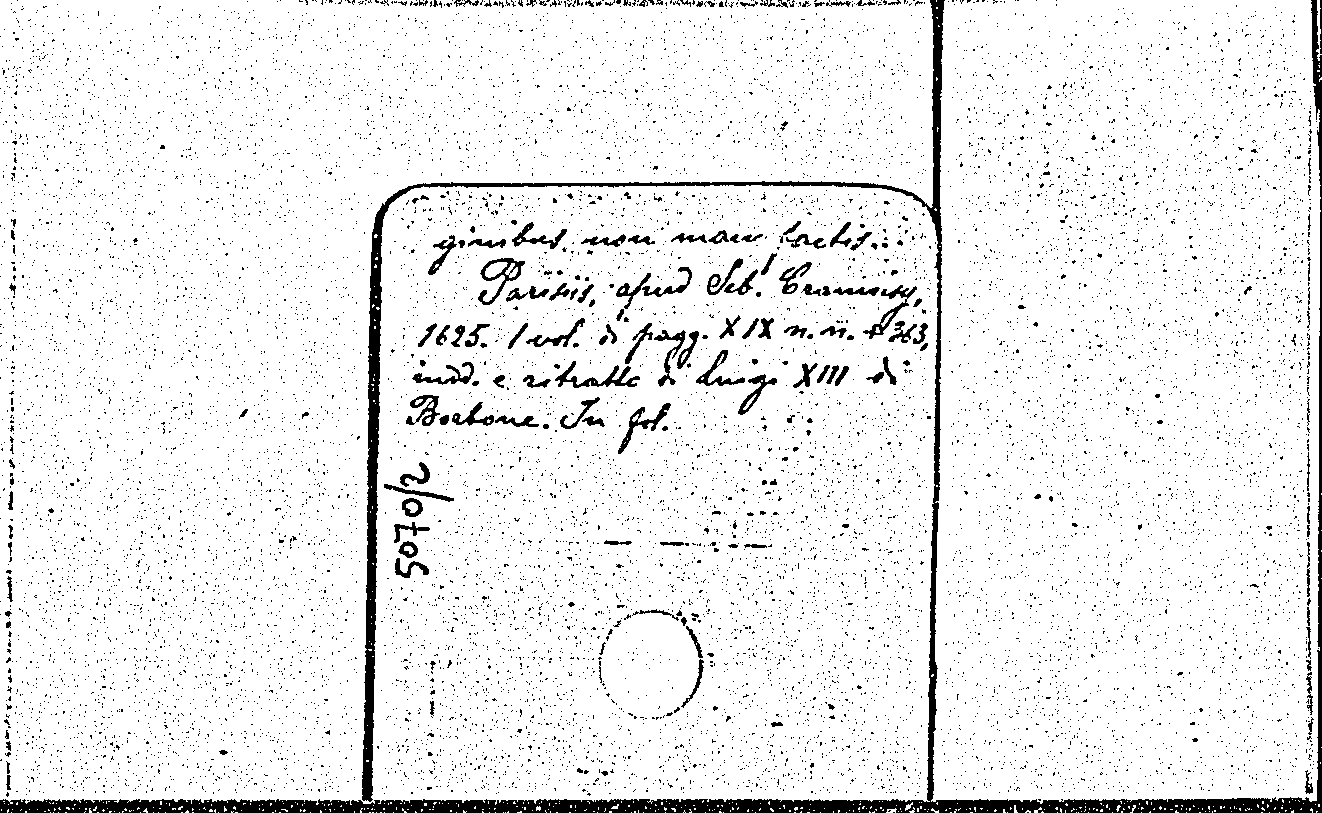 ginibus non manu factis...
Parisiis, apud Seb. Cramoisy,
1625. 1 vol. di pagg. XIX n. n. + 363,
ind. e ritratto di Luigi XIII di
Borbone. In fol.
5070/2